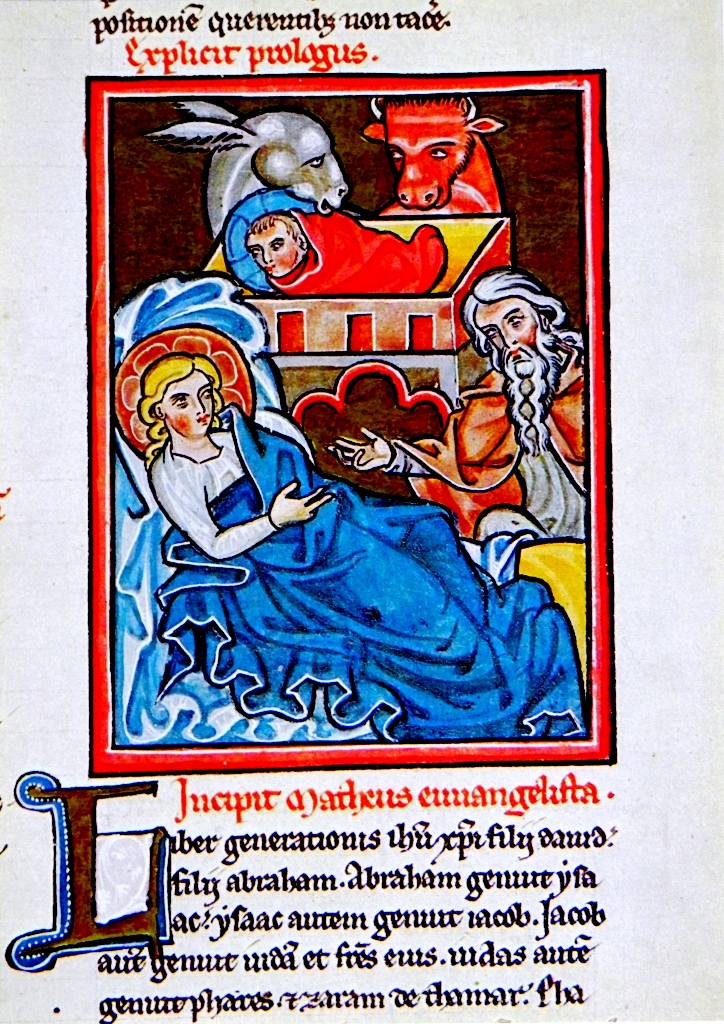 positionē querentib; non tacē.
Explicit prologus.
Incipit Matheus euuangelista.
Liber generationis ihū xp̄i filij dauid:
filij abraham. Abraham genuit ysa
ac: ysaac autem genuit iacob. Jacob
autē genuit iudā et frēs eius. iudas autē
genuit phares. & zaram de thamar. Pha